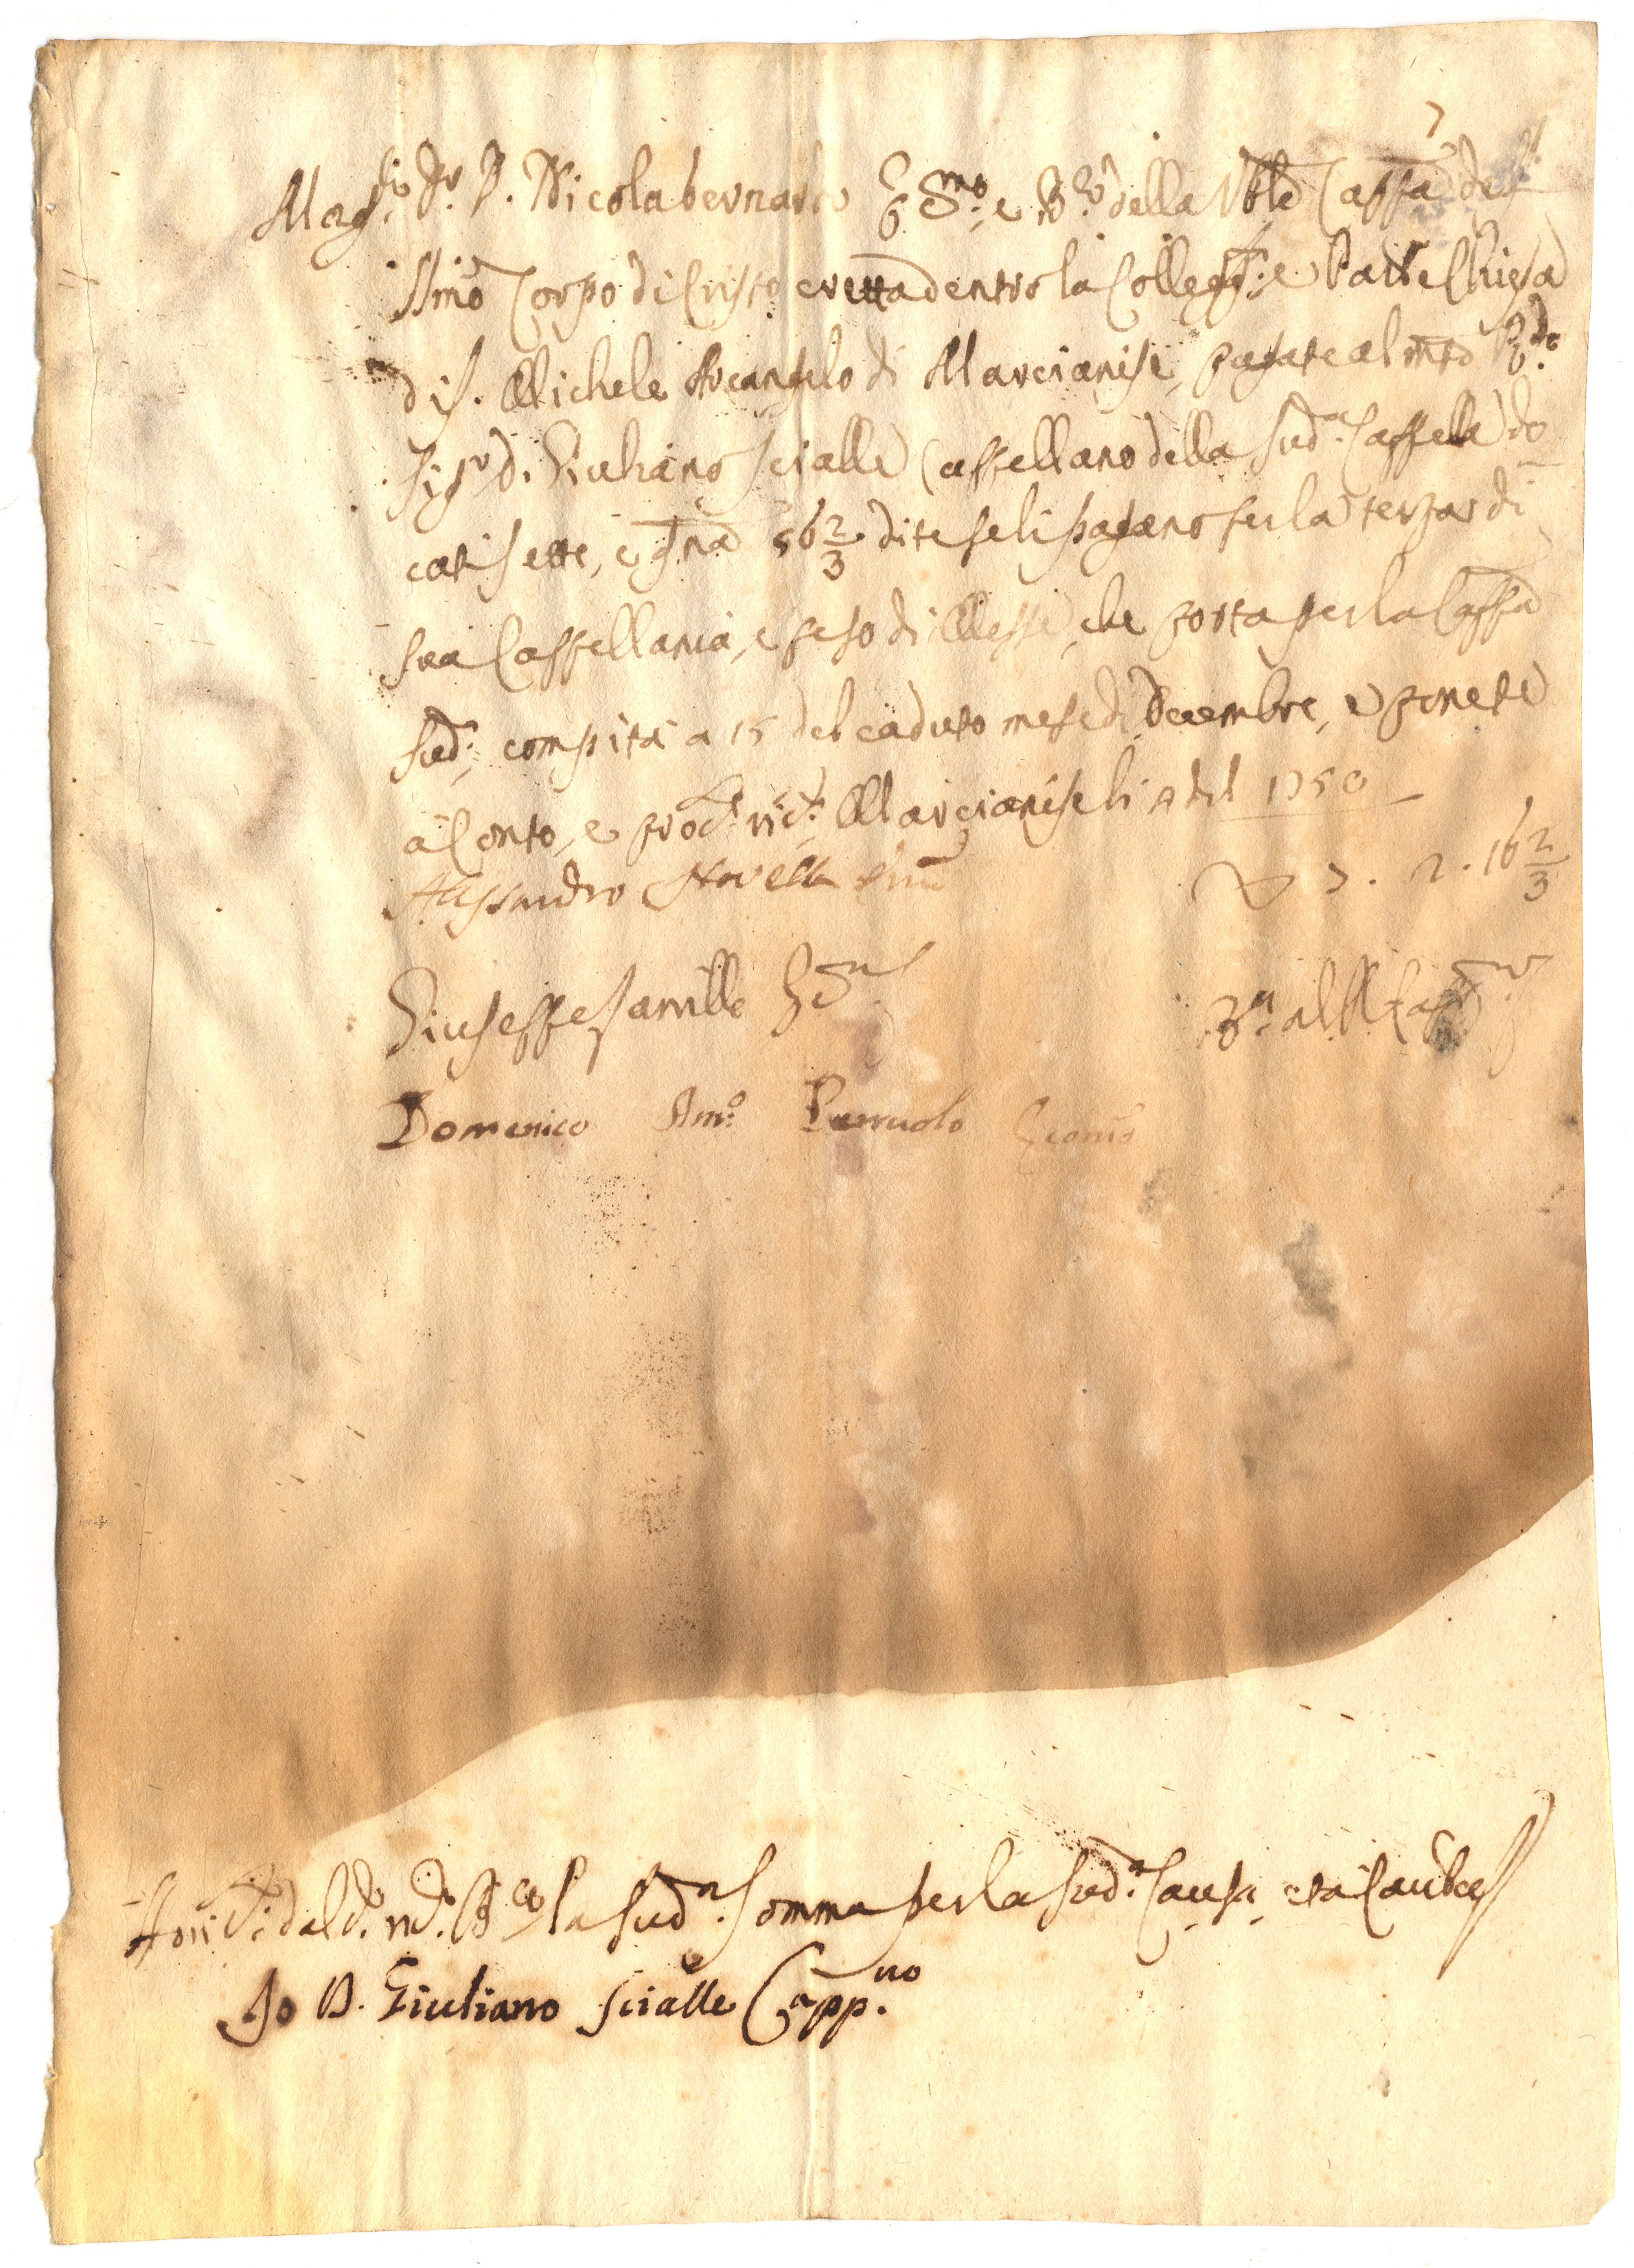 7
Mag.co D.r D. Nicola bernardo Ec.mo e B.ro della V.ble Cappa del
SSmo Corpo di Cristo eretta dentro la Collegta e Parle Chiesa
di S. Michele Arcangelo di Marcianise, pagate al mto R.do
Sig.r D. Giuliano Scialle Cappellano della sud.a Cappella do=
cati sette, e gna 56 2/3 dite seli pagano per la terza di
sua Cappellania, e peso di Messe, che porta per la Cappa
sud.a, compita a 15 del caduto mese di Decembre, e ponete
à Conto, e proc.te ric.ta Marcianise li del 1750
Alessandro Novella
D 7. 2. 16 2/3
Giuseppe Ec.mo
al Capp.no
Domenico Ant.o Economo
Ho ric.to dal d.o la sud.a Somma per la sud.a Causa, et à Cautela
Io D. Giuliano Scialle Capp.no